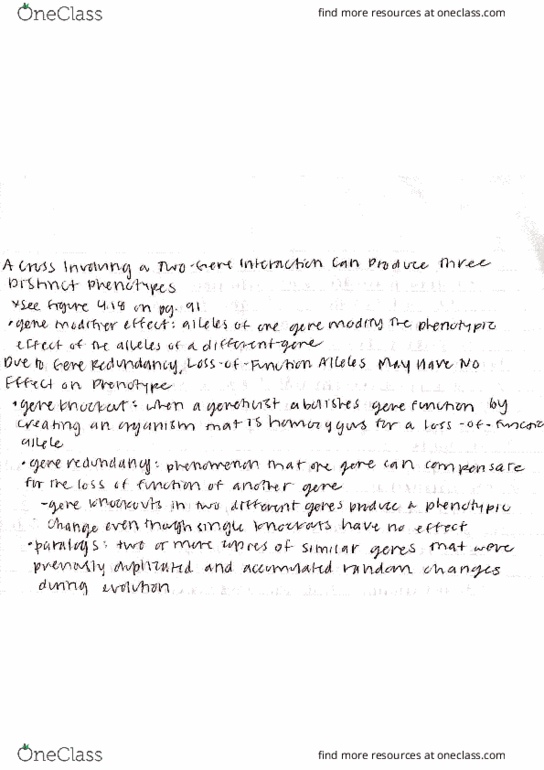 OneClass
find more resources at oneclass.com
A Cross Involving a Two-Gene Interaction Can Produce Three
Distinct Phenotypes
*See Figure 4.18 on pg. 91
• gene modifier effect: alleles of one gene modify the phenotypic
effect of the alleles of a different gene
Due to Gene Redundancy, Loss-of-Function Alleles May Have No
Effect on Phenotype
• gene knockout: when a geneticist abolishes gene function by
creating an organism that is homozygous for a loss-of-function
allele
• gene redundancy: phenomenon that one gene can compensate
for the loss of function of another gene
- gene knockouts in two different genes produce a phenotypic
change even though single knockouts have no effect
• paralogs: two or more copies of similar genes that were
previously duplicated and accumulated random changes
during evolution
OneClass
find more resources at oneclass.com